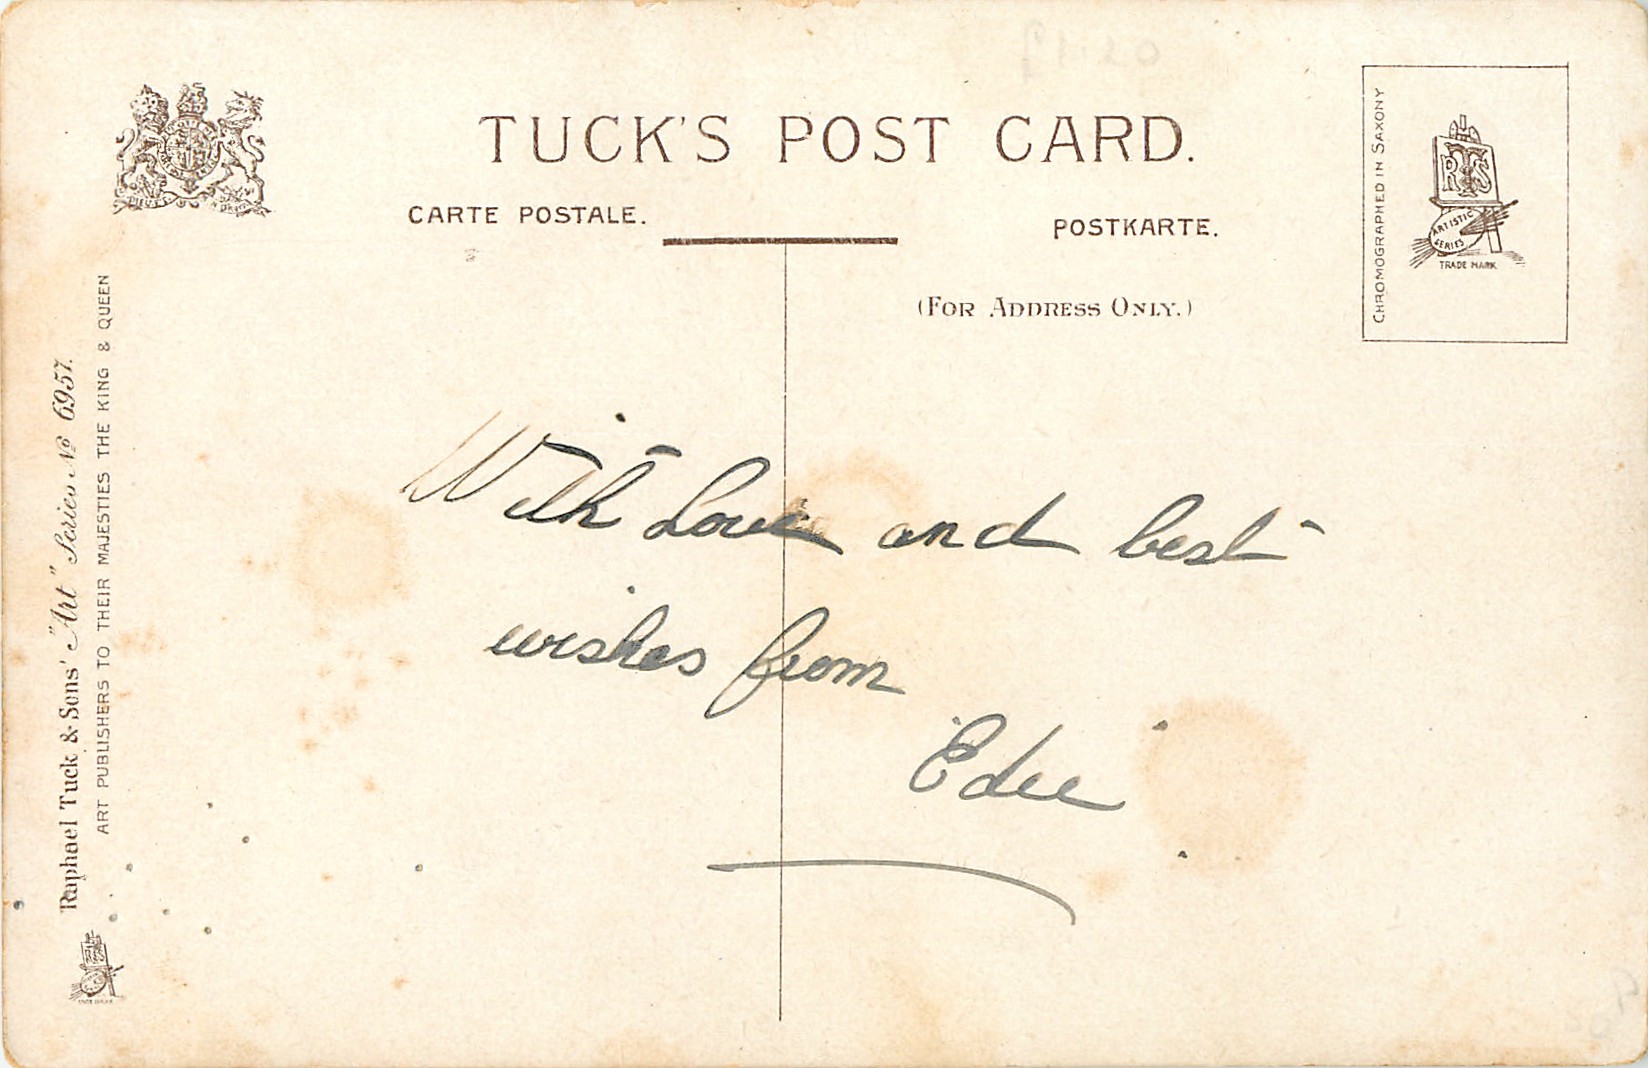 TUCK'S POST CARD.
CARTE POSTALE.
POSTKARTE.
(FOR ADDRESS ONLY.)
CHROMOGRAPHED IN SAXONY
RTS
ARTISTIC
SERIES
TRADE MARK
Raphael Tuck & Sons' "Art" Series No 6957.
ART PUBLISHERS TO THEIR MAJESTIES THE KING & QUEEN
With Love and best
wishes from
Edie